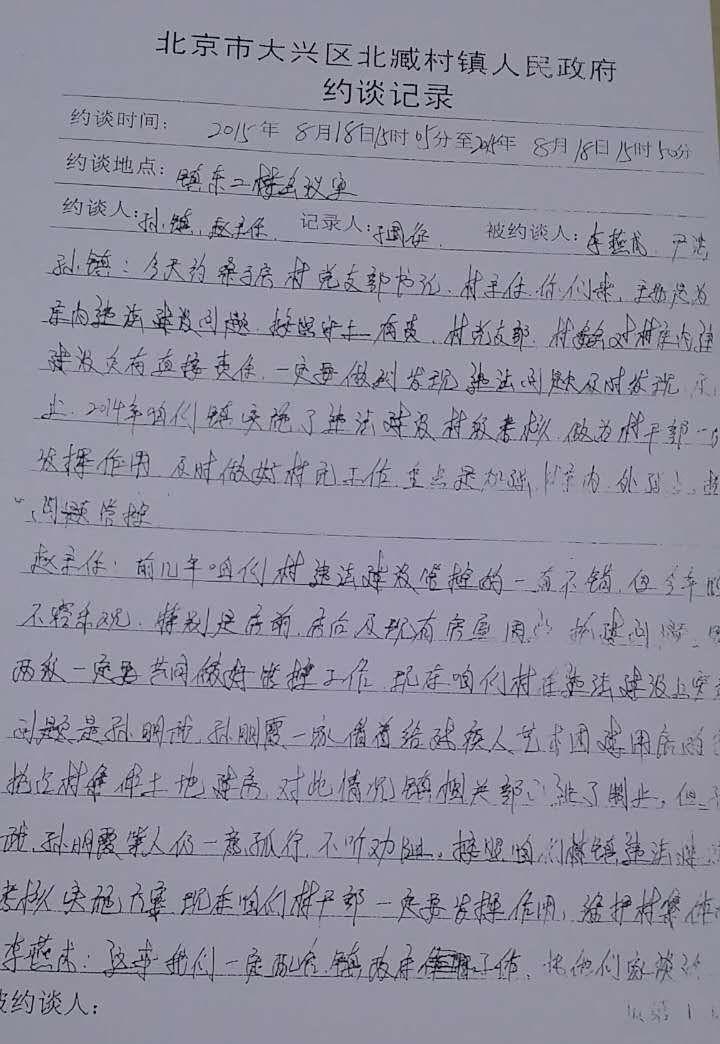 北京市大兴区北臧村镇人民政府
约谈记录
约谈时间： 2015年 8月18日15时05分至2015年 8月18日15时50分
约谈地点：镇东二楼会议室
约谈人：孙镇、赵主任 记录人： 被约谈人：李燕 尹
孙镇：今天约 房村党支部书记、村主任你们来，主要是为
庄内违法建设问题，按照守土有责，村党支部、村委会对村庄内违
建设负有直接责任，一定要做到发现违法问题及时发现
止，2014年咱们镇实施了违法建设村级考核，做为村干部一
发挥作用 及时做好村民工作 重点是加强 庄内、外
问题管控
赵主任：前几年咱们村违法建设管控的一直不错，但今年
不容乐观，特别是房前、房后及现有房屋 问题
两级一定要共同做好管控工作 现在咱们村在违法建设上突
问题是孙明 、孙明霞一家借着给残疾人艺术团建用房的
抢占村集体土地建房，对此情况镇相关部门 了制止，但
孙明霞等人仍一意孤行，不听劝阻，按照咱们 镇违法建
考核实施方案 现在咱们村干部一定要发挥作用，维护村集体
李燕 ：这事我们一定配合镇政府 工作，找他们家谈
被约谈人：
第 1